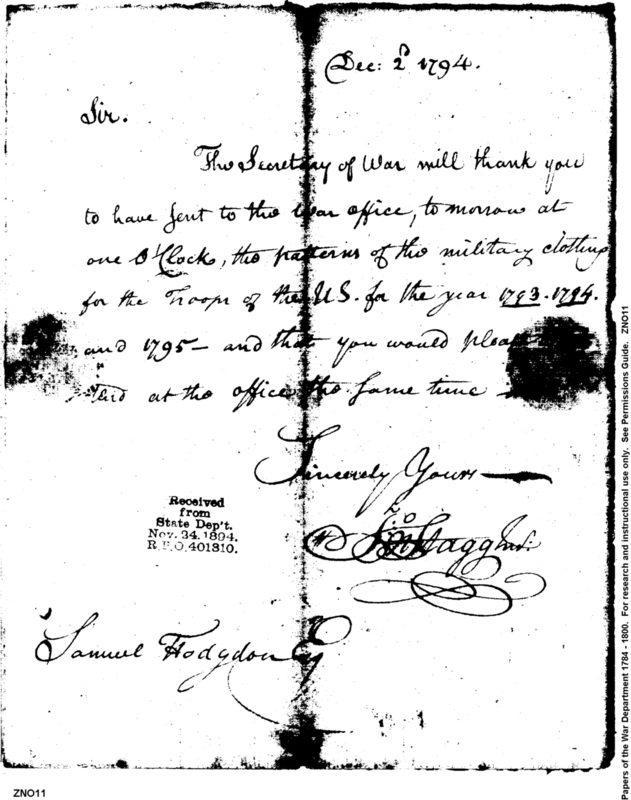 Dec: 2d 1794.
Sir.
The Secretary of War will thank you
to have sent to the War office, to morrow at
one O'Clock, the patterns of the military clothing
for the Troops of the U.S. for the year 1793. 1794.
and 1795 — and that you would please
at the office the same time —
Sincerely Yours —
Jn Stagg Junr.
Received
from
State Dep't.
Nov. 24. 1894.
R.P.O. 401810.
Samuel Hodgdon Esq
ZNO11
Papers of the War Department 1784 - 1800. For research and instructional use only. See Permissions Guide. ZNO11